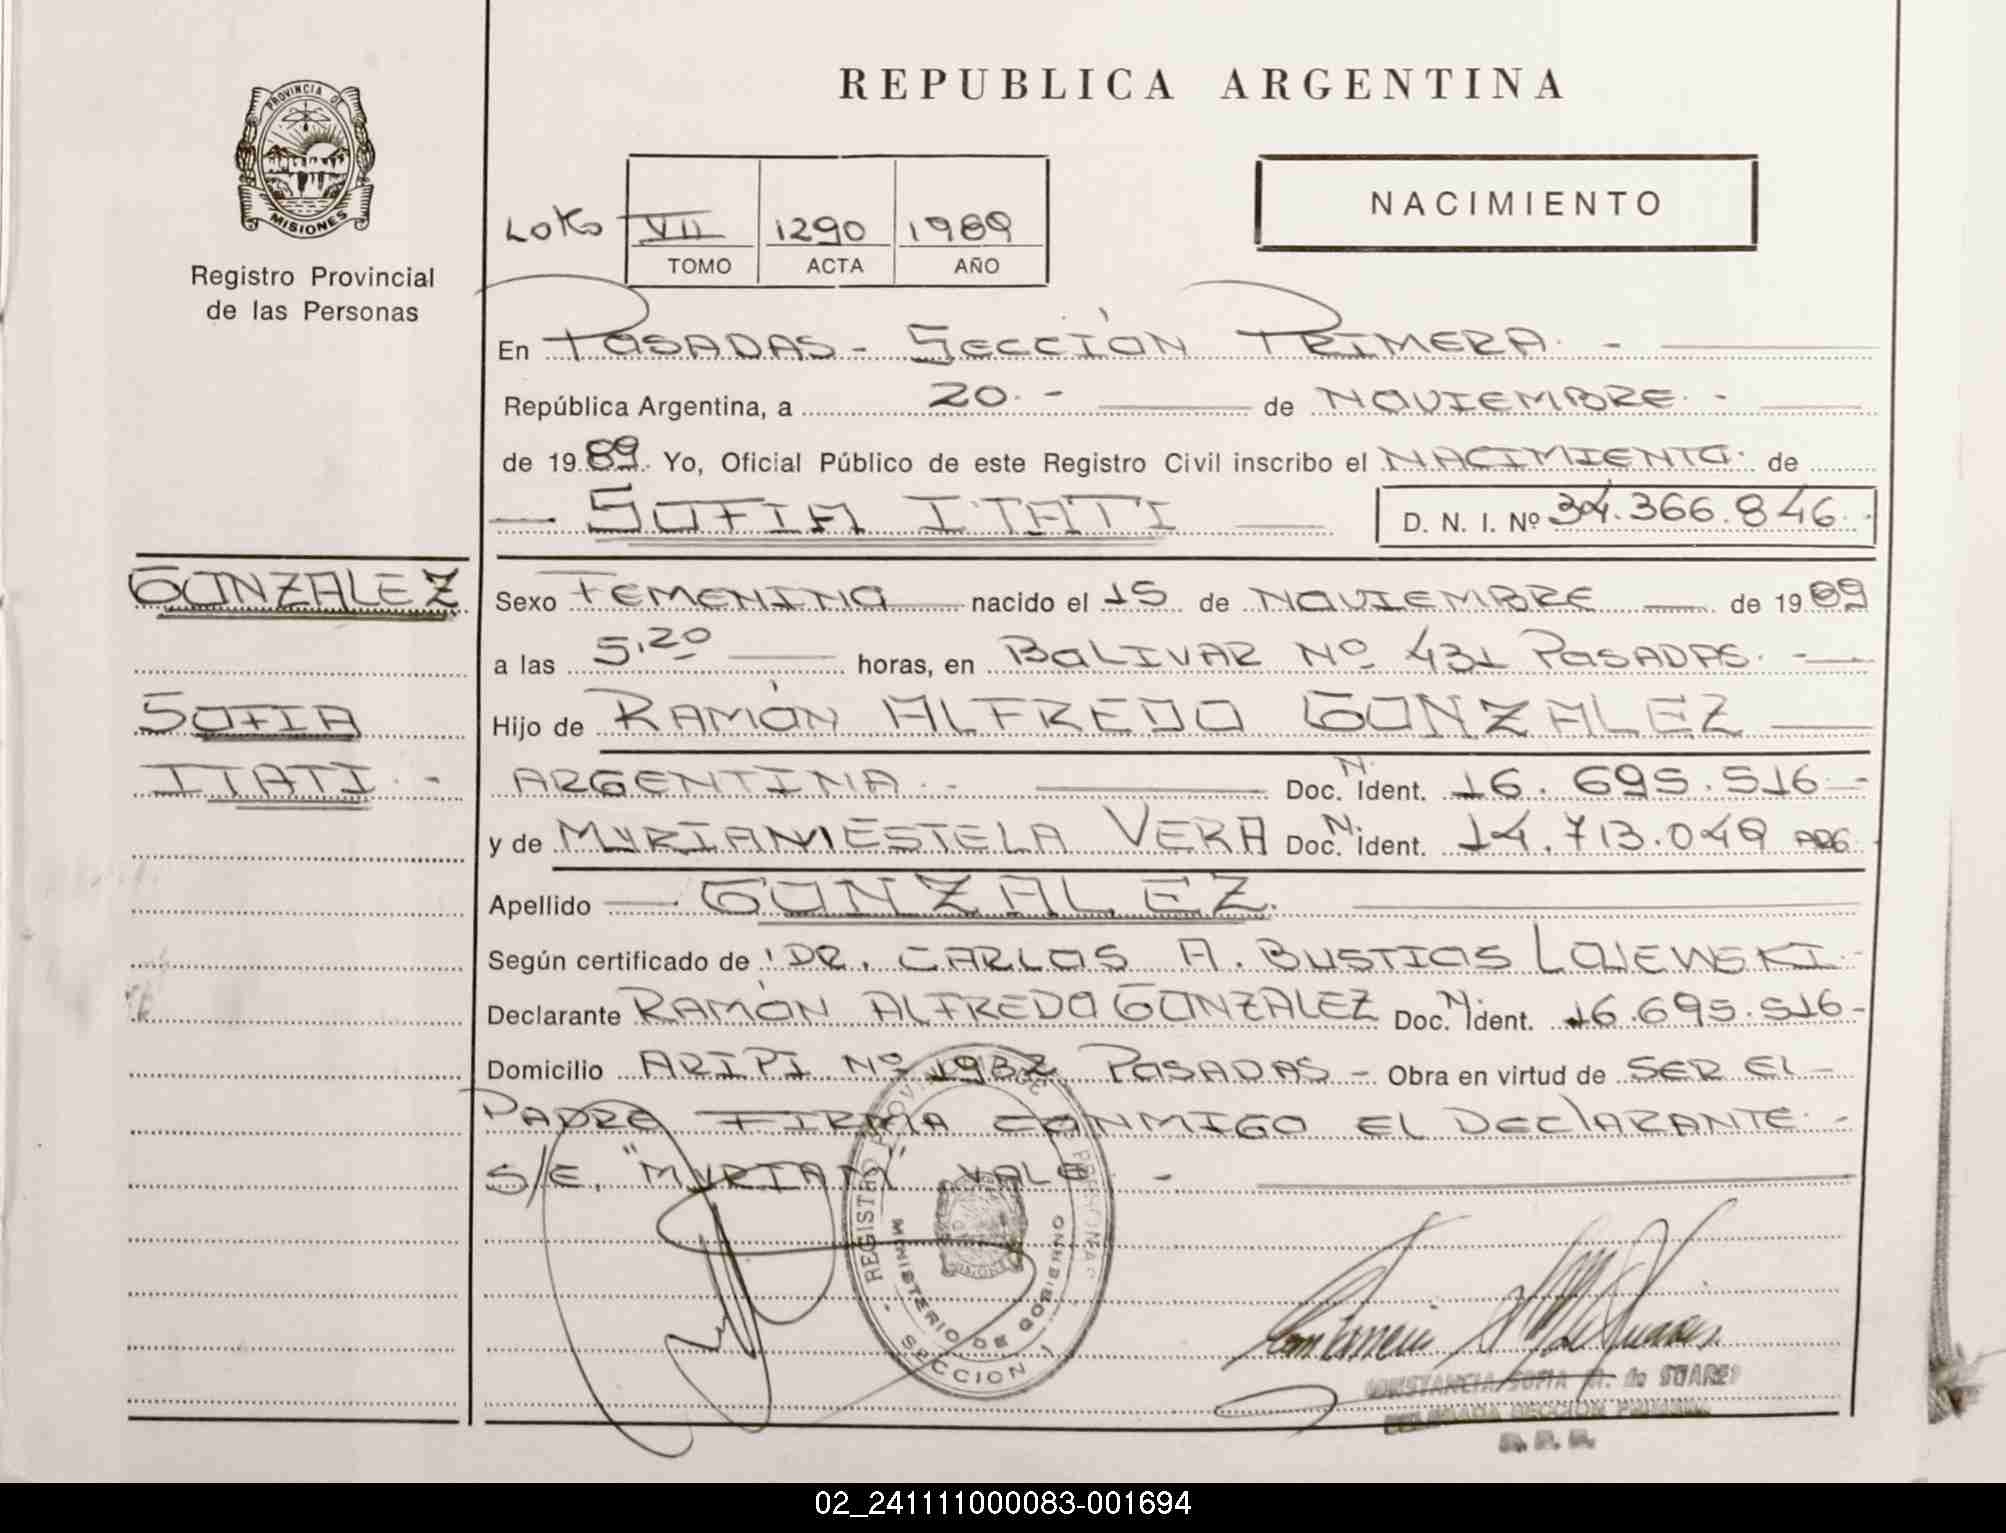 REPUBLICA ARGENTINA
PROVINCIA DE
MISIONES
Registro Provincial
de las Personas
NACIMIENTO
VII 1290 1989
TOMO ACTA AÑO
En POSADAS - SECCIÓN PRIMERA. -
República Argentina, a 20. - de NOVIEMBRE. -
de 1989. Yo, Oficial Público de este Registro Civil inscribo el NACIMIENTO. de
— SOFIA ITATI — D. N. I. Nº 34.366.846.
GONZALEZ
SOFIA
ITATI. -
Sexo FEMENINO nacido el 15 de NOVIEMBRE — de 1989
a las 5,20 — horas, en BOLIVAR Nº 431 POSADAS. -
Hijo de RAMÓN ALFREDO GONZALEZ —
ARGENTINA. - — Doc. N. Ident. 16.695.516 -
y de MYRIAM ESTELA VERA Doc. N. Ident. 14.713.049 ARG.
Apellido — GONZALEZ.
Según certificado de DR. CARLOS A. BUSTIOS LOJEWSKI -
Declarante RAMÓN ALFREDO GONZALEZ Doc. N. Ident. 16.695.516 -
Domicilio ARIPI Nº 1932 POSADAS - Obra en virtud de SER EL -
PADRE FIRMA CONMIGO EL DECLARANTE. -
S/E. "MYRIAM" VALE -
REGISTRO PROV. DE PERSONAS
MINISTERIO DE GOBIERNO
SECCION 1
CONSTANCIA SOFIA M. de SUAREZ
DELEGADA SECCION PRIMERA
02_241111000083-001694